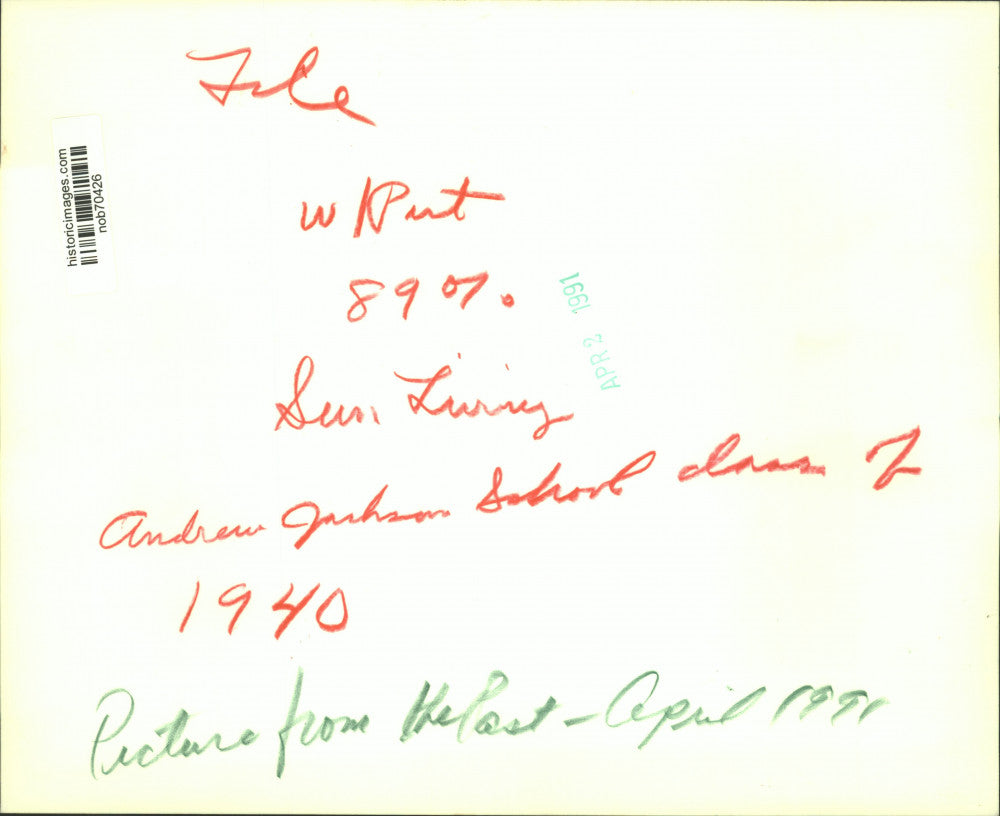 File
historicimages.com
nob70426
89%
APR 2 1991
Sun. Living
Andrew Jackson School class of
1940
Picture from the Past - April 1991